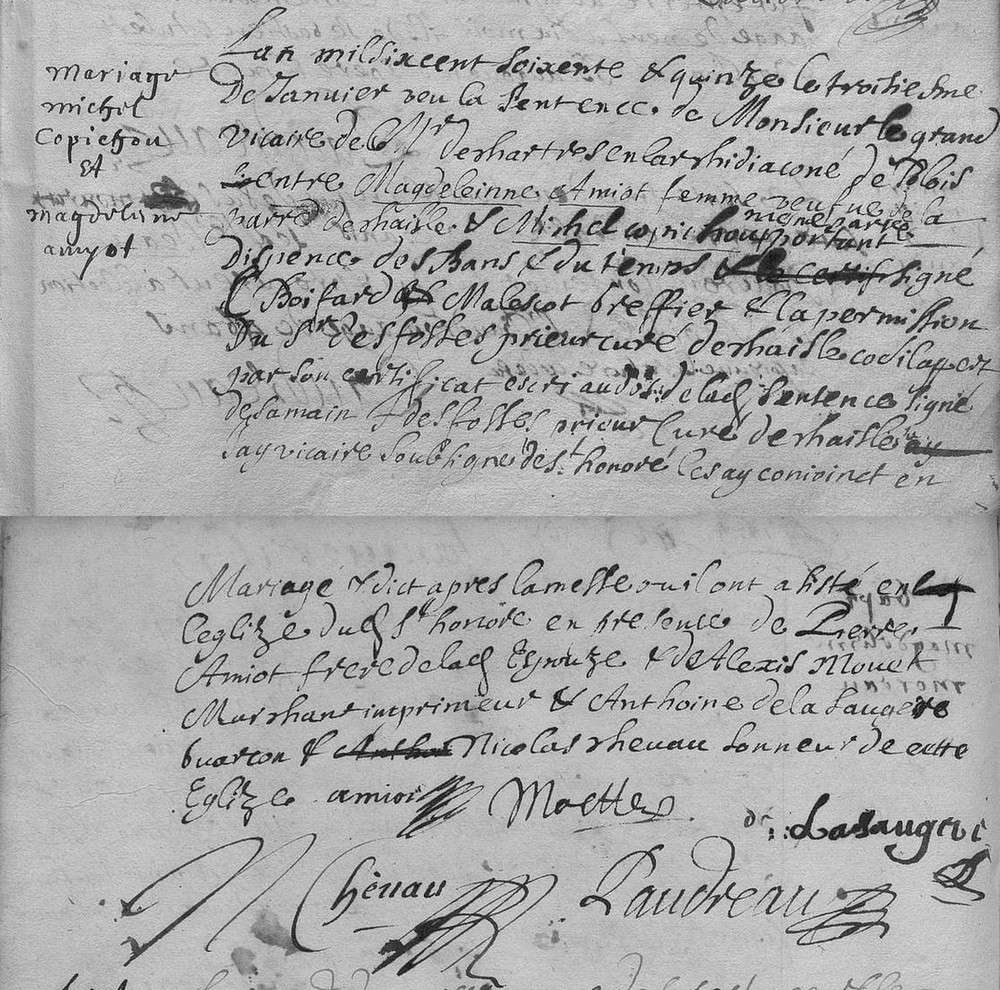 mariage
michel
copichou
Et
magdeleine
amyot
Lan mil sixcent soixente & quinze le troisiesme
De Janvier veu la sentence de Monsieur le grand
vicaire de Mr de chartres en larchidiaconé de Blois
entre Magdeleinne Amiot femme veufve de la
parre de chaille & Michel copichou portant
dispence des bans & du temps signé
Boifard & Malescot greffier & la permission
Du Sr Desfosses prieur curé de chaisle
par son certificat escri au dos de lad sentence signé
de sa main desfosses prieur Curé de chaisle
Jay vicaire soubsigné de st honoré les ay conioinct en
Mariage & dict apres la messe ou il ont asisté en
leglize dud st honore en presence de Pierre
Amiot frere de lad Espouze & de Alexis Mouet
Marchant imprimeur & Anthoine de la saugere
garcon & Nicolas chenau sonneur de cette
Eglize amiot Moette
de Lasaugere
N Chenau Gaudreau